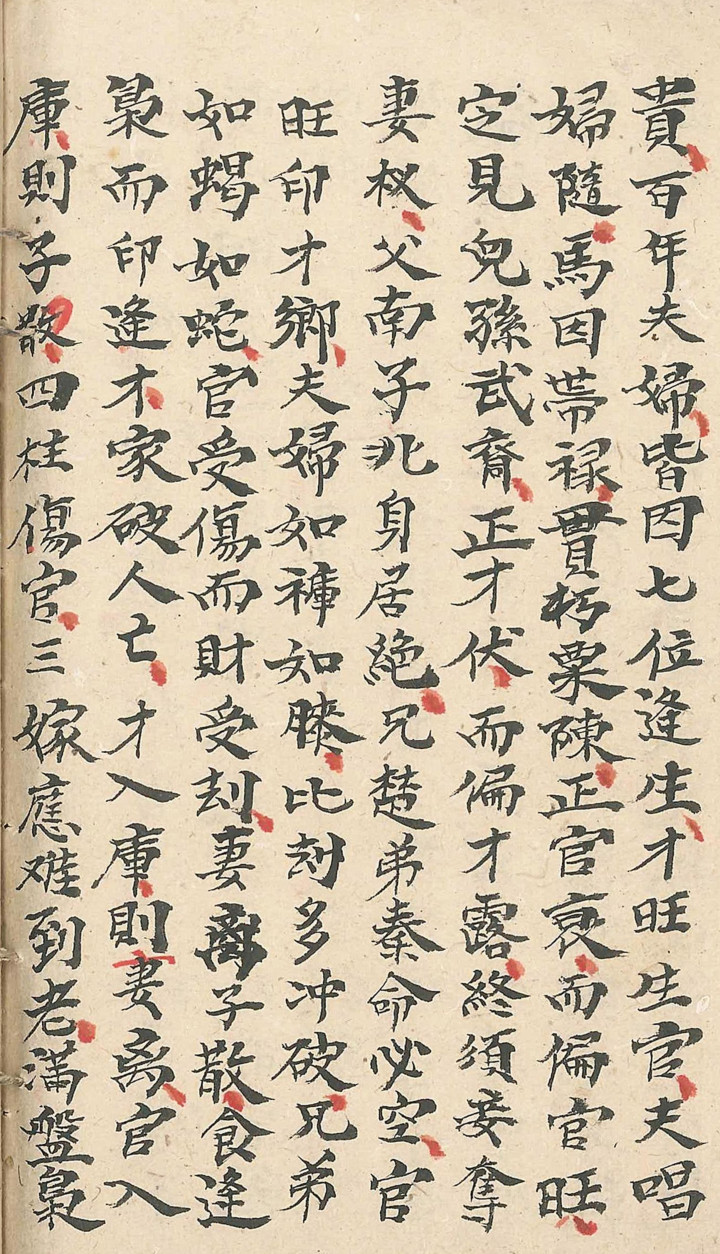 貴百年夫婦皆因七位逢生才旺生官夫唱
婦隨馬因帶禄貫朽粟陳正官衰而偏官旺
定見兒孫武裔正才伏而偏才露終須妾奪
妻权父南子北身居絶兄楚弟秦命必空官
旺印才鄉夫婦如褲如膝比刦多冲破兄弟
如蝎如蛇官受傷而財受刦妻離子散食逢
梟而印逢才家破人亡才入庫則妻离官入
庫則子散四柱傷官三嫁應难到老滿盤梟